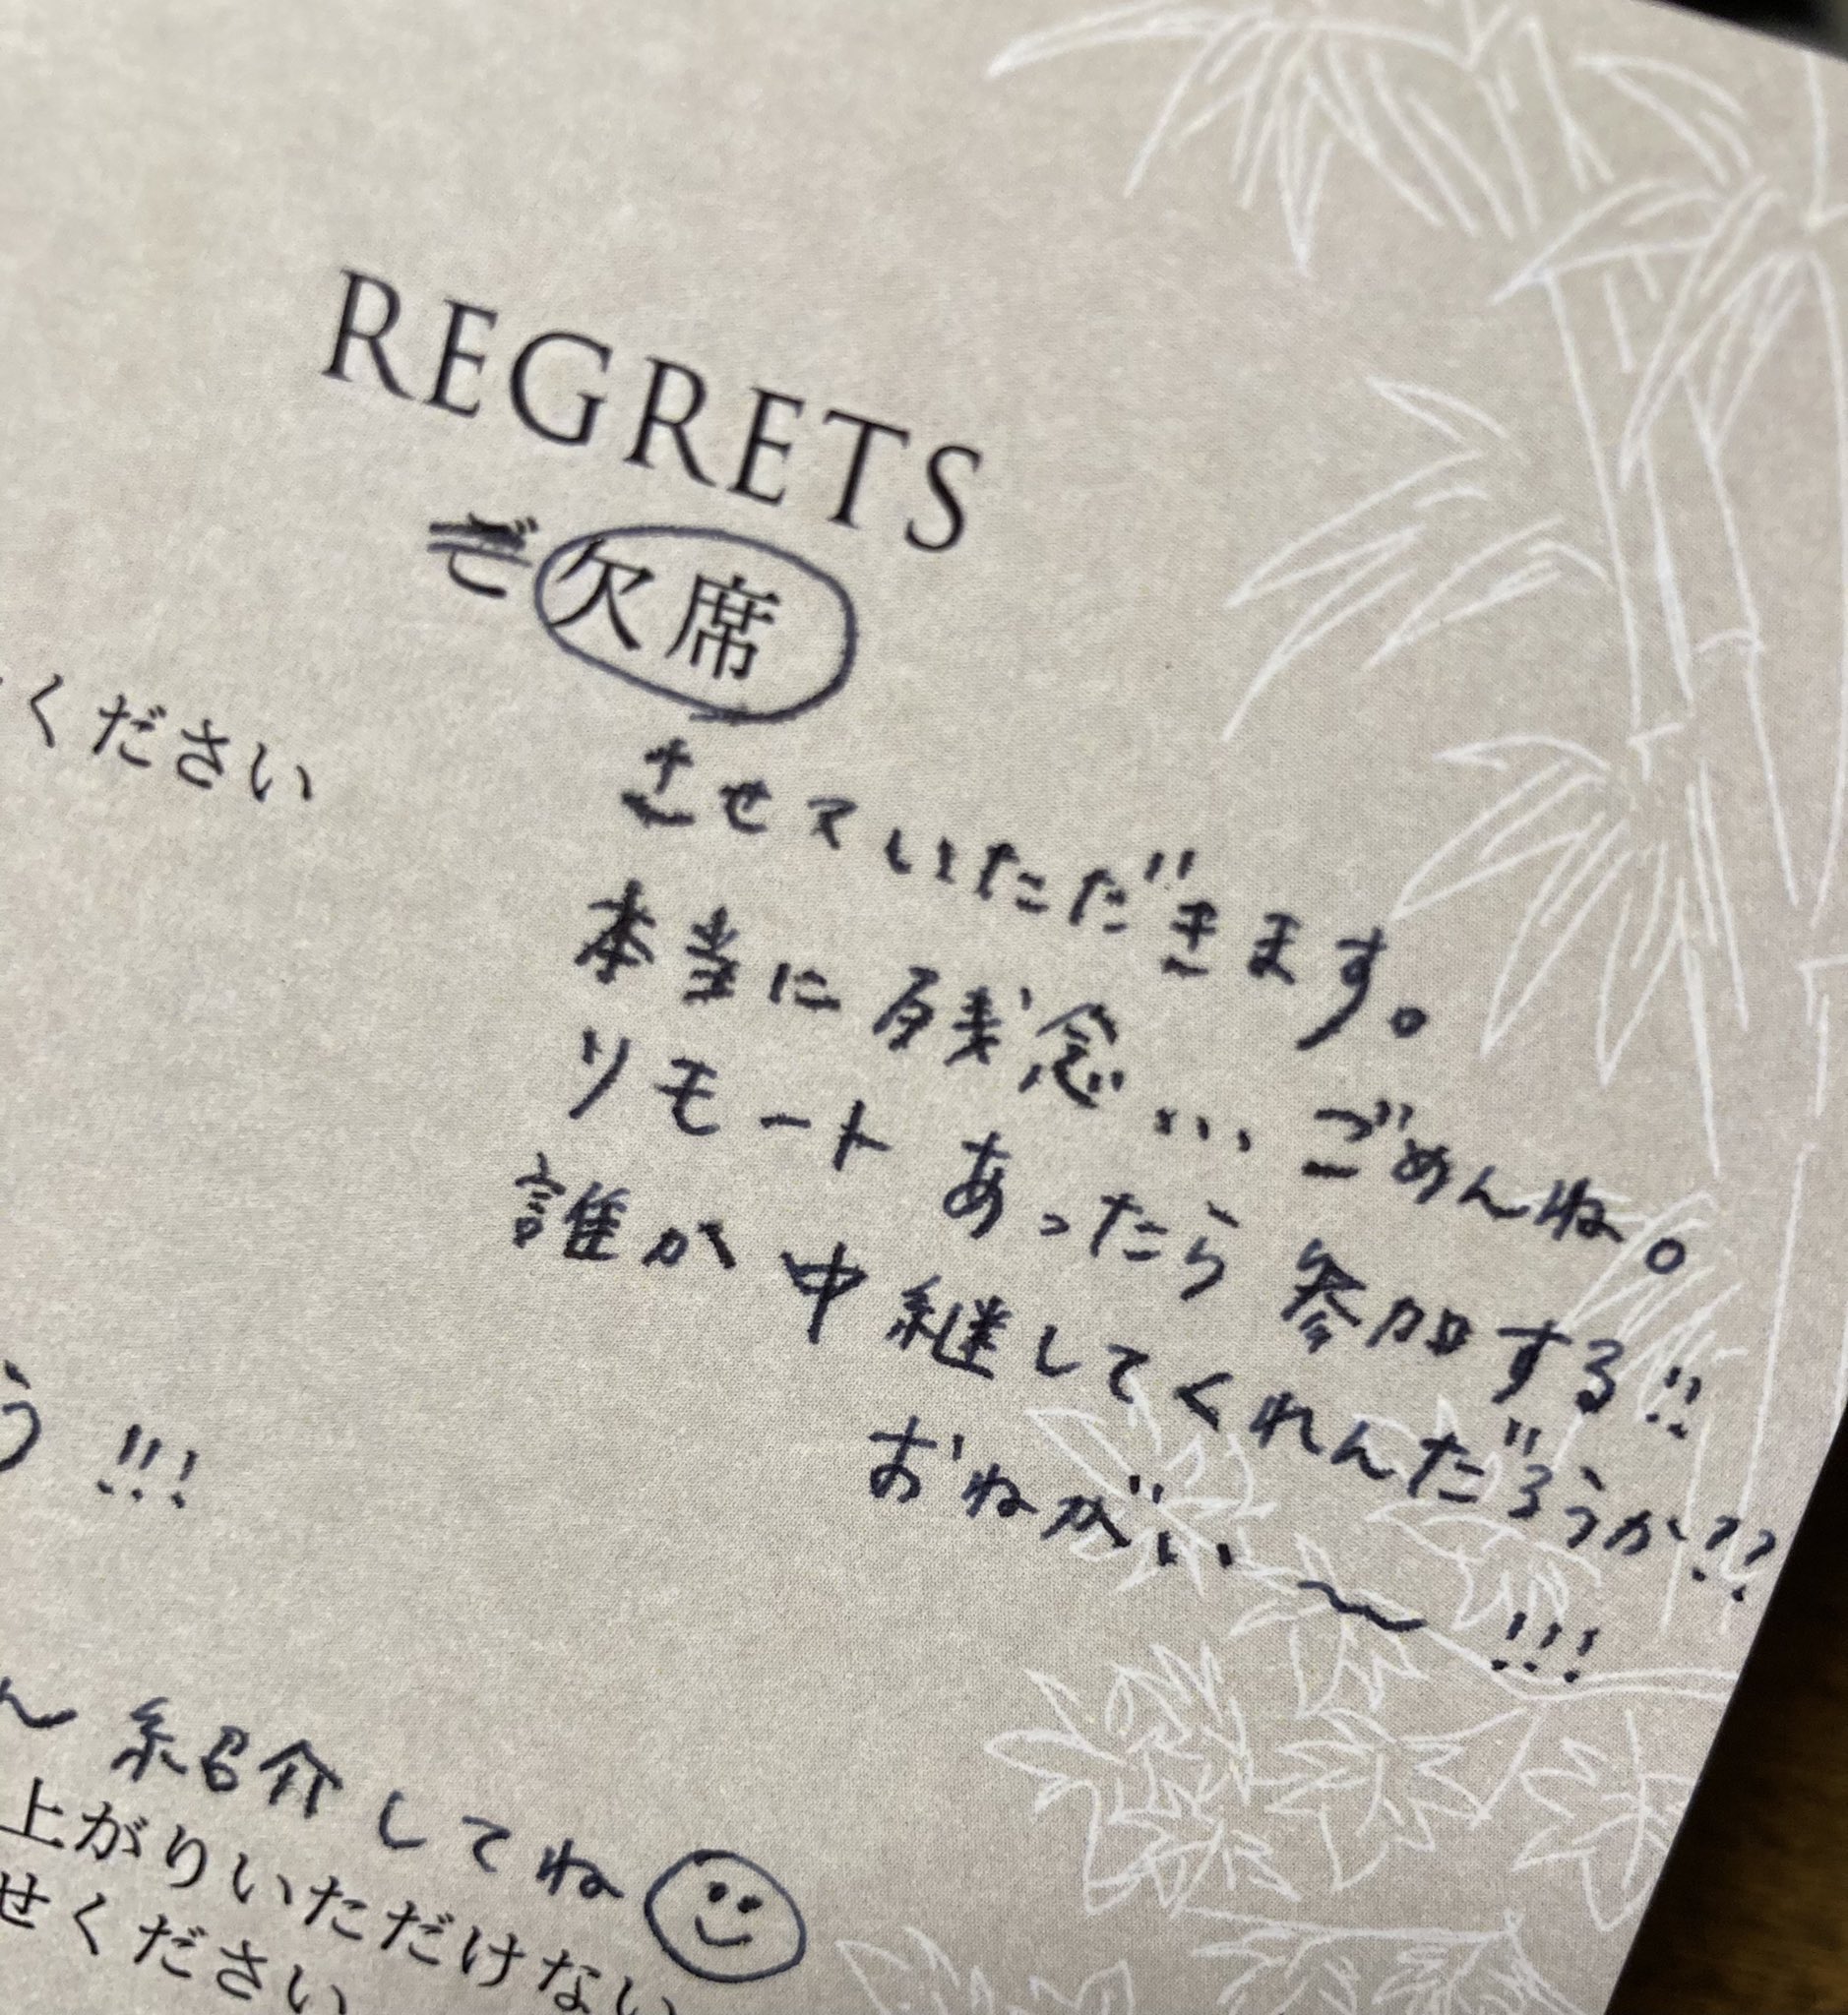 REGRETS
ご欠席
ください
させていただきます。
本当に残念... ごめんね。
リモートあったら参加する!!
誰か中継してくれんだろうか??
おねがい〜!!!
う!!!
ん紹介してね
上がりいただけない
せください